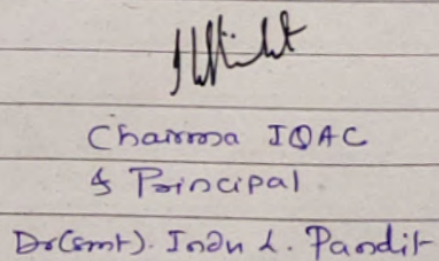 Chairma IQAC
& Principal
Dr(smt). Indu L. Pandit